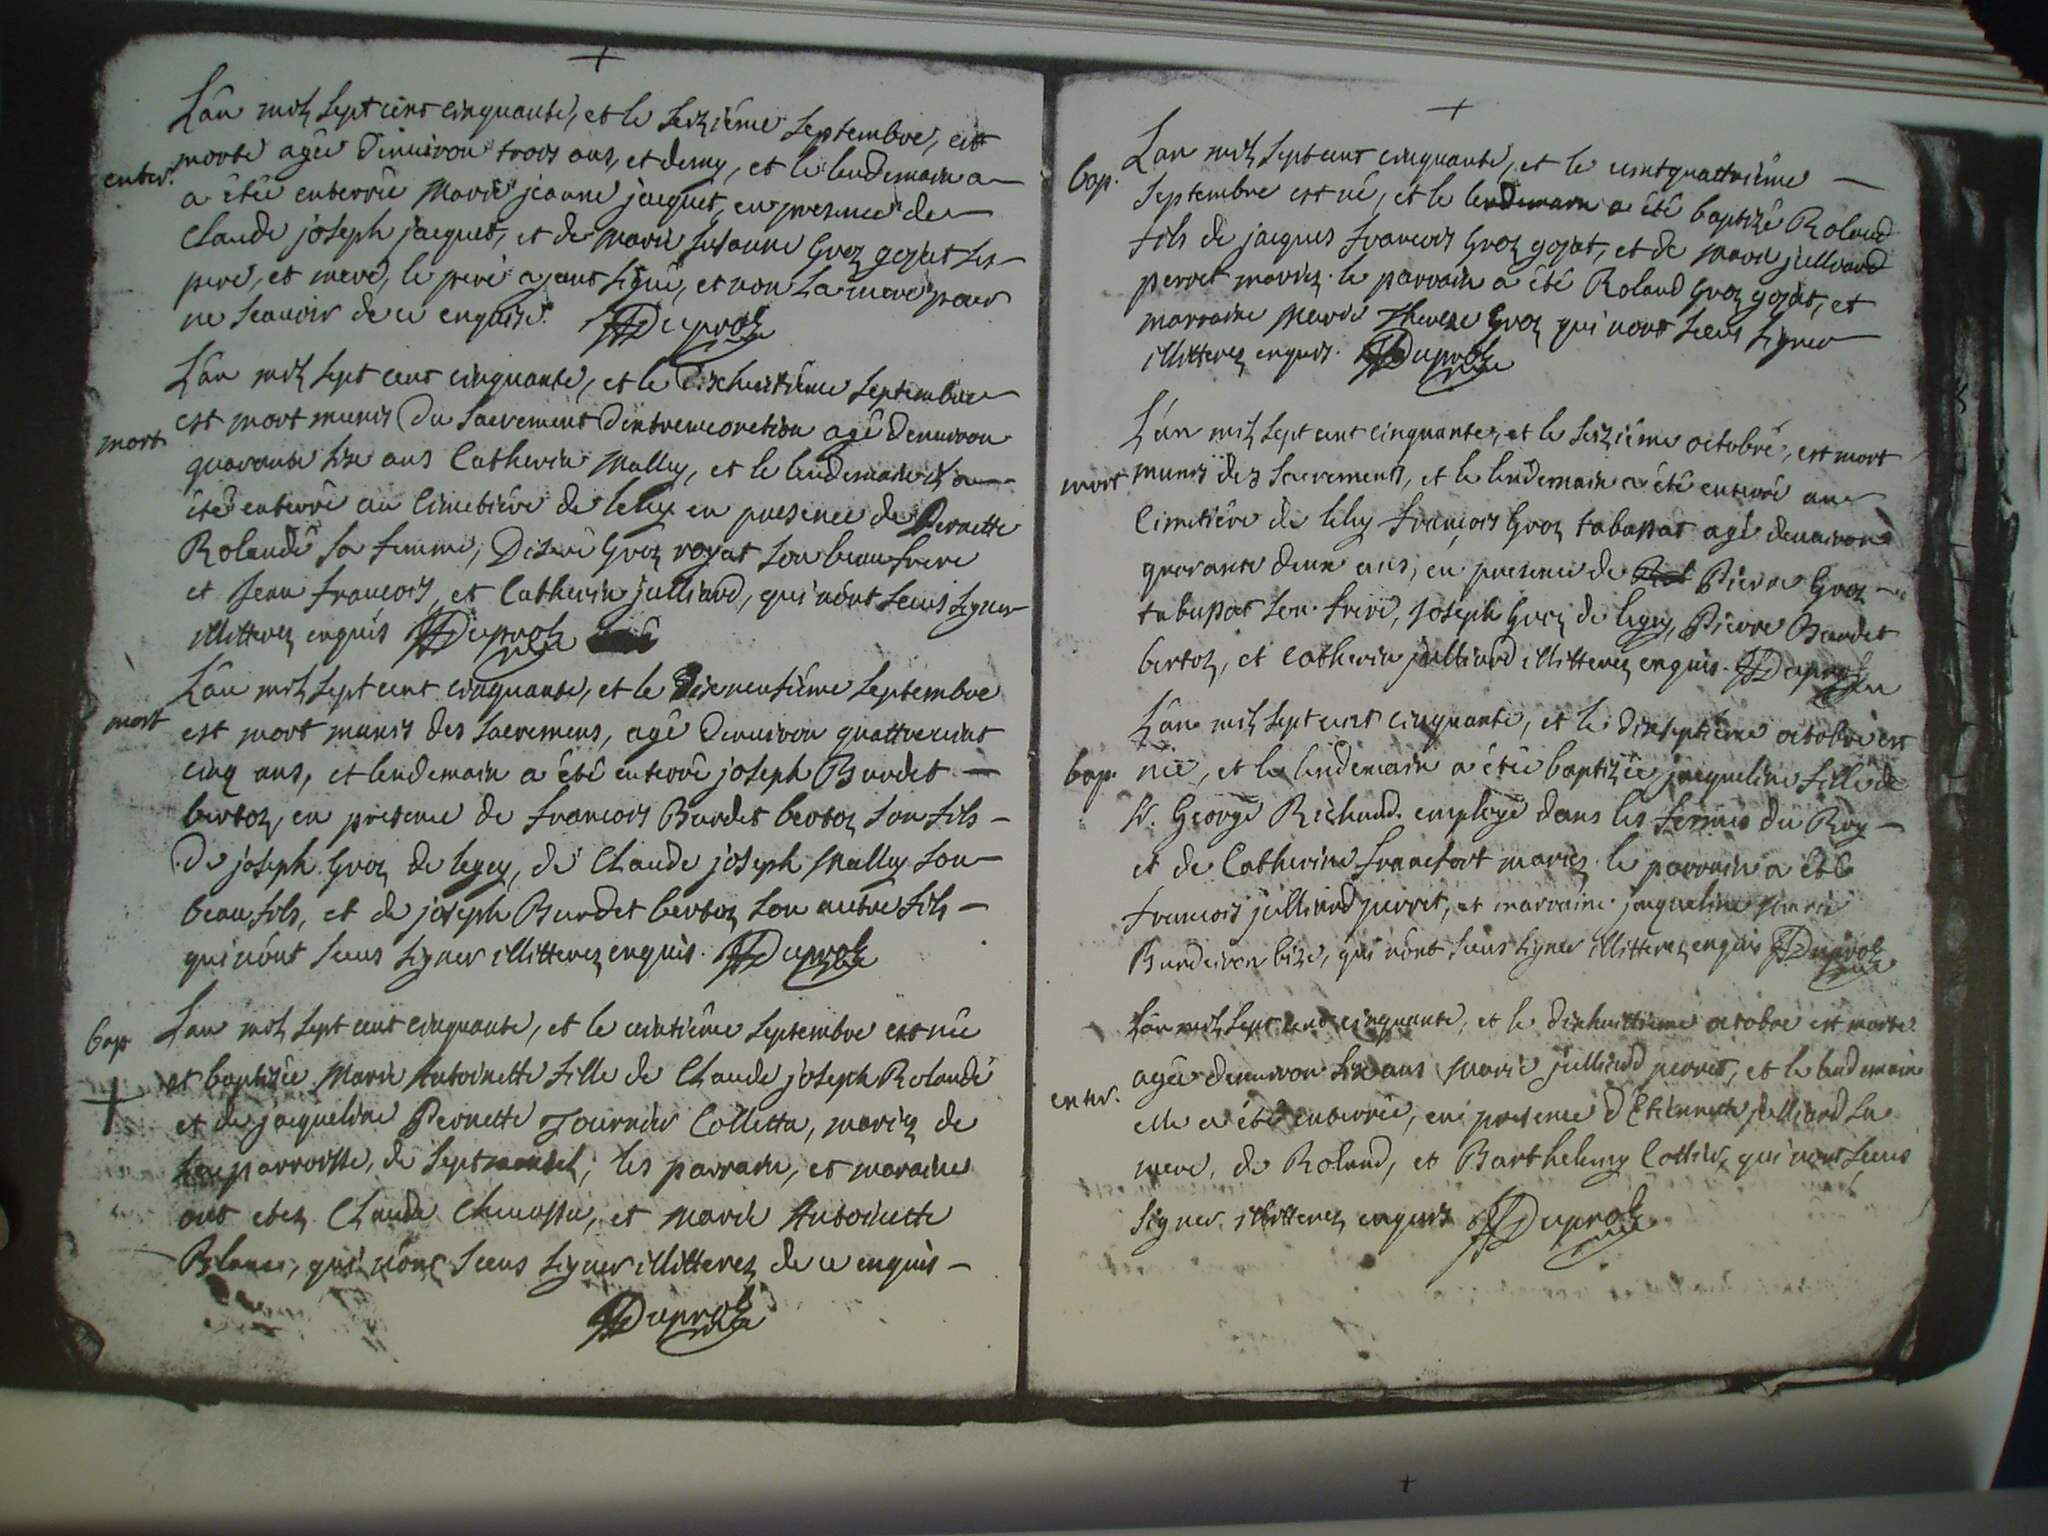 L'an mil sept cent cinquante, et le seizième septembre, est
enter. morte agée d'environ trois ans, et demy, et le lendemain a
a étée enterrée Marie jeanne jacquet, en presence de
Claude joseph jacquet, et de Marie Susanne Groz gojat ses
pere, et mere, le pere ayant signé, et non la mere pour
ne scavoir de ce enquise. Duproz
L'an mil sept cent cinquante, et le dixhuitième septembre
mort est mort munis du sacrement d'extremeonction agé d'environ
quarante six ans Catherin Malluy, et le lendemain il a
été enterré au Cimetière de lelex en presence de Pernette
Rolandé sa femme, Désiré Groz royat son beaufrere
et Jean françois, et Catherin julliard, qui n'ont sceus signer
illitterez enquis Duproz
L'an mil sept cent cinquante, et le dixneufième septembre
mort est mort munis des sacremens, agé d'environ quattrevint
cinq ans, et lendemain a été enterré joseph Burdet
bertoz, en presence de francois Burdet bertoz son fils
de joseph Groz de legey, de Claude joseph Malluy son
beaufils, et de joseph Burdet bertoz son autre fils
qui n'ont sceus signer illitterez enquis. Duproz
bap L'an mil sept cent cinquante, et le vintième septembre est née
et baptizée Marie Antoinette fille de Claude joseph Rolandé
et de jacqueline Pernette Tournier Colletta, mariez de
parroisse, de Septmoncel; les parrain, et maraine
ont etez Claude Chevassu, et Marie Antoinette
Blanc, qui n'ont sceus signer illitterez de ce enquis
Duproz
L'an mil sept cent cinquante, et le vintquattrième
bap. septembre est né, et le lendemain a été baptizé Roland
fils de jacques francois Groz gojat, et de Marie julliard
perret mariez. le parrain a été Roland Groz gojat, et
marraine Marie Therese Groz qui n'ont sceus signer
illitterez enquis. Duproz
L'an mil sept cent cinquante, et le seizième octobre, est mort
mort munis des sacrements, et le lendemain a été enterré au
Cimetière de lelex françois Groz tabussat agé d'environ
quarante deux ans, en presence de Pierre Groz
tabussat son frere, joseph Groz de legey, Pierre Burdet
bertoz, et Catherin julliard illitterez enquis. Duproz
L'an mil sept cent cinquante, et le dixseptième octobre est
bap. née, et le lendemain a étée baptizée jacqueline fille de
Sr. George Richard employé dans les fermes du Roy
et de Catherine francfort mariez le parrain a été
francois julliard perret, et marraine jacqueline Marie
Burdeiron bize, qui n'ont sceus signer illitterez enquis Duproz
L'an mil sept cent cinquante, et le dixhuittième octobre est morte
agée d'environ six ans Marie julliard perret, et le lendemain
enter. elle a été enterrée, en presence d'Etiennette julliard sa
mere, de Roland, et Barthelemy Collier, qui n'ont sceus
signer illitterez enquis Duproz